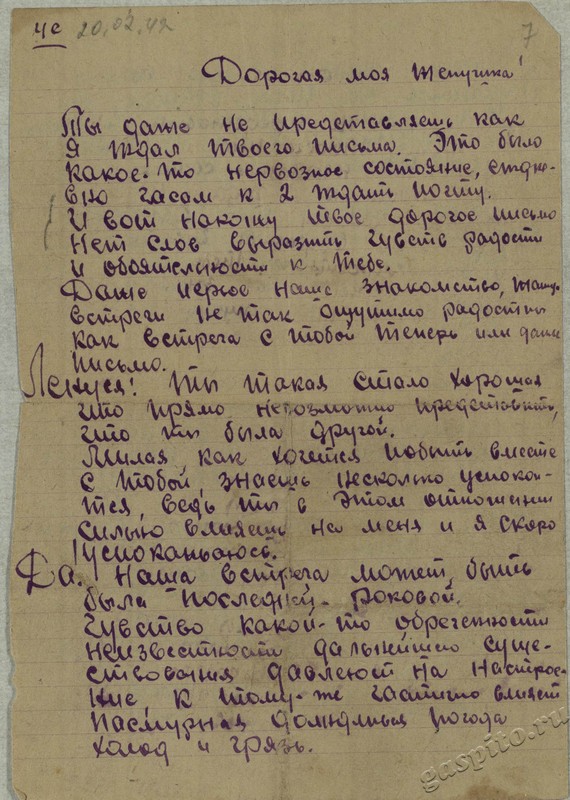 4с 20.02.42
7
Дорогая моя Женушка!
Ты даже не представляешь как
я ждал твоего письма. Это было
какое-то нервозное состояние, ежднев-
вно часам к 2 ждать почту.
И вот нахожу твое дорогое письмо
нет слов выразить чувств радости
и обоятельности к тебе.
Даже первое наше знакомство,
встречи не так ощутимо радостны
как встреча с тобой теперь или даже
письмо.
Ленуся! Ты такая стало хорошая
что прямо невозможно представить,
что ты была другой.
Милая, как хочется побыть вместе
с тобой, знаешь несколько успокои-
тся, ведь ты в этом отношении
сильно влияешь на меня и я скоро
успокаиваюсь.
Да. Наша встреча может быть
была последней - роковой.
Чувство какой-то обреченности
неизвестности дальнейшего суще-
ствования давлеют на настрое-
ние, к тому-же частично влияет
пасмурная дождливая погода
холод и грязь.
gaspito.ru